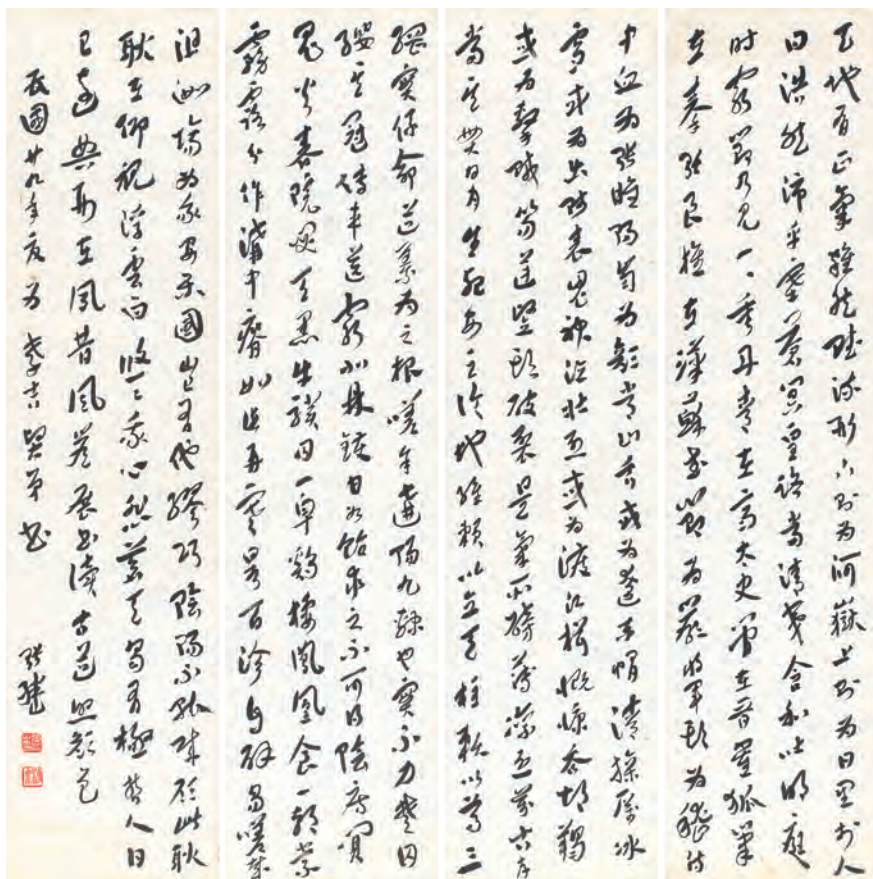 天地有正氣雜然賦流形下則為河嶽上則為日星於人
曰浩然沛乎塞蒼冥皇路當清夷含和吐明庭
時窮節乃見一一垂丹青在齊太史簡在晉董狐筆
在秦張良椎在漢蘇武節為嚴將軍頭為嵇侍
中血為張睢陽齒為顏常山舌或為遼東帽清操厲冰
雪或為出師表鬼神泣壯烈或為渡江楫慨慷吞胡羯
或為擊賊笏逆豎頭破裂是氣所磅薄凜烈萬古存
當其貫日月生死安足論地維賴以立天柱賴以尊三
綱實係命道義為之根嗟余遘陽九隸也實不力楚囚
纓其冠傳車送窮北鼎鑊甘如飴求之不可得陰房闃
鬼火春院閟天黑牛驥同一皁鷄棲鳳凰食一朝蒙
霧露分作溝中瘠如此再寒暑百沴自辟易嗟哉
沮洳場為我安樂國豈有他繆巧陰陽不能賊顧此耿
耿在仰視浮雲白悠悠我心悲蒼天曷有極哲人日
已遠典刑在夙昔風簷展書讀古道照顏色
民國廿九年夏為吉賢弟書
張繼